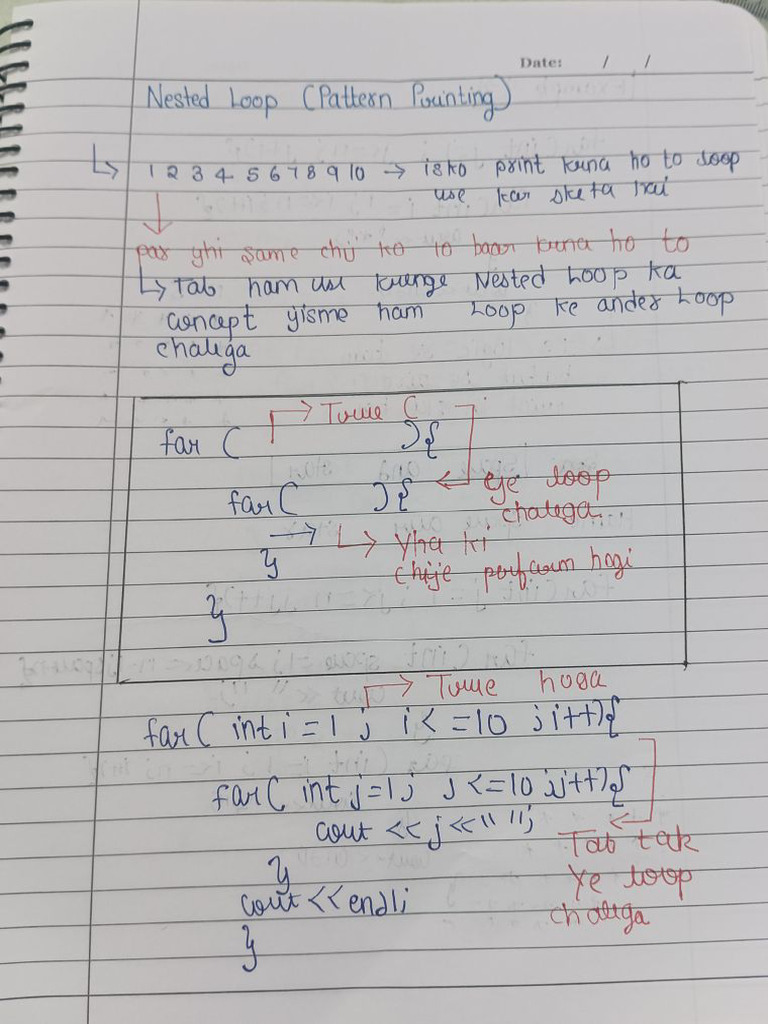 Date: / /
Nested Loop (Pattern Printing)
↳ 1 2 3 4 5 6 7 8 9 10 → isko print krna ho to loop
use kar skta hai
par yhi same chij ko 10 baar krna ho to
↳ Tab ham use krenge Nested Loop ka
concept yisme ham Loop ke ander Loop
chalega
→ True (
for ( ) {
for ( ) { ← eje loop
chalega...
} → ↳ yha ki
chije perform hogi
}
→ True hoga
for ( int i = 1 ; i < = 10 ; i++) {
for ( int j = 1 ; j < = 10 ; j++) {
cout << j << " " ;
Tab tak
}
ye loop
cout << endl;
chalega
}